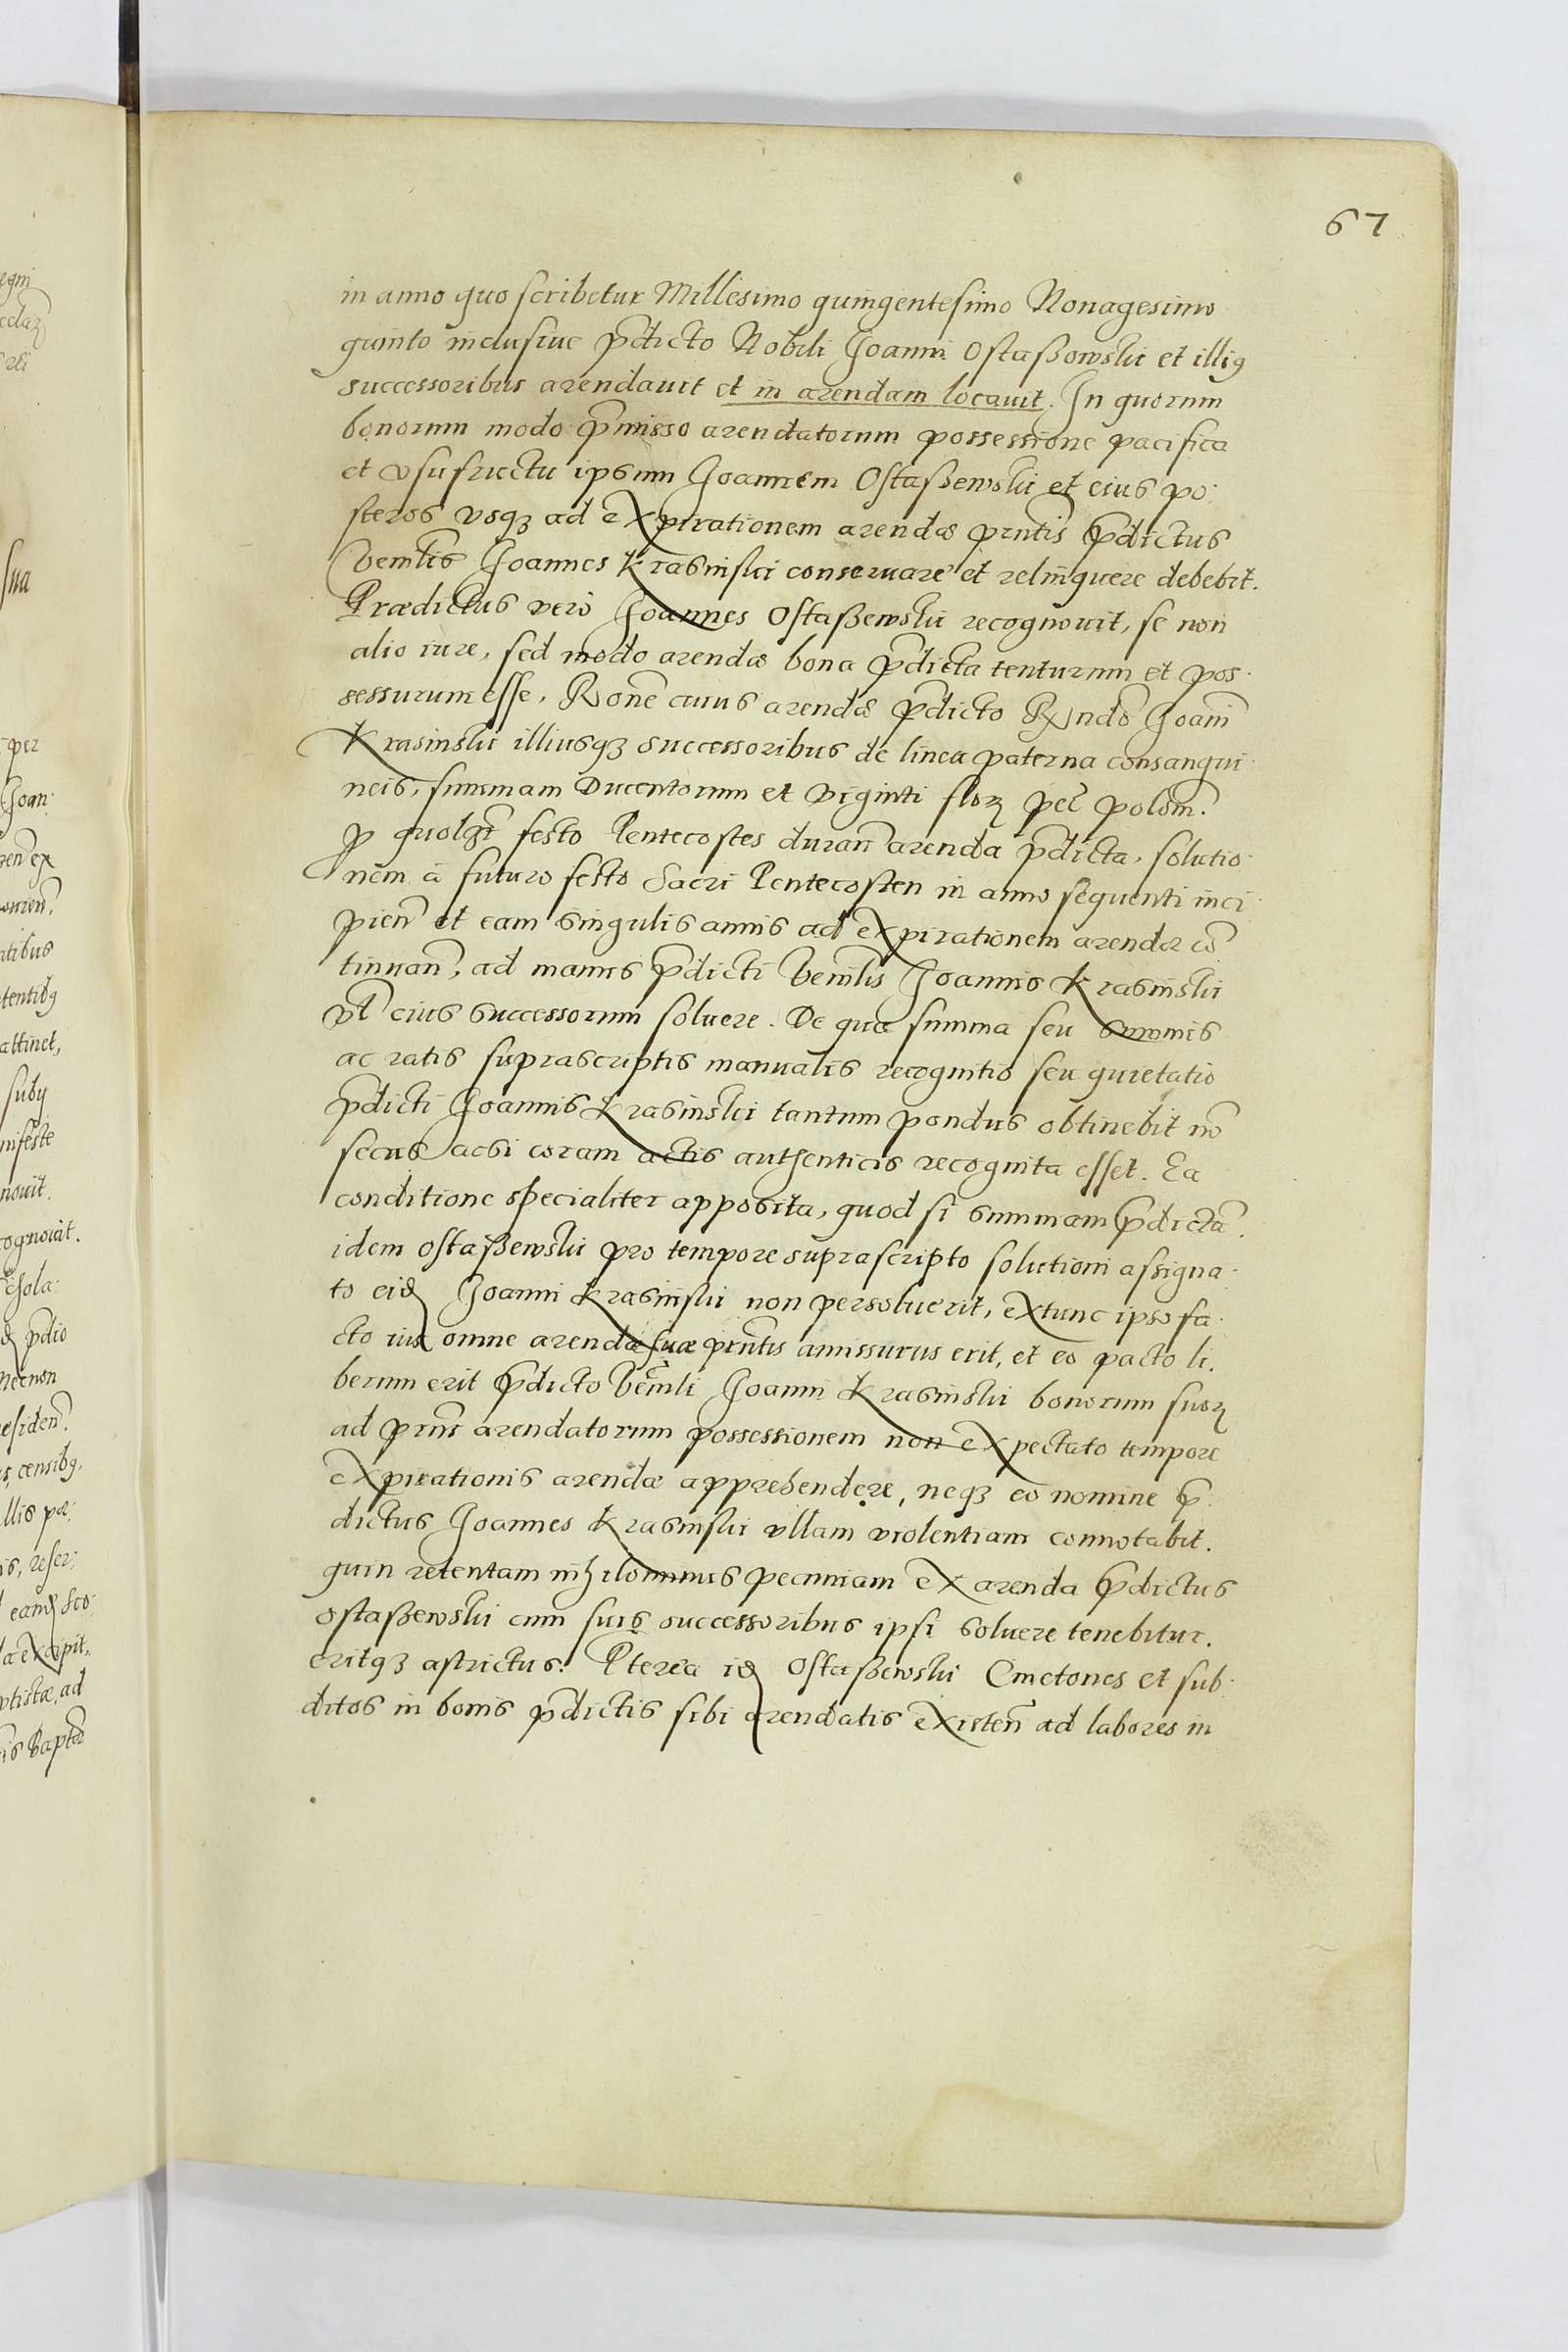 67
in anno quo scribetur Millesimo quingentesimo Nonagesimo
quinto inclusiue p̃dicto Nobili Joanni Ostaßowskii et illiꝰ
successoribus arendauit et in arendam locauit. In quorum
bonorum modo p̃misso arendatorum possessione pacifica
et vsufructu ipsum Joannem Ostaßewskii et eius po·
steros vsqꝫ ad expirationem arendæ pñtis p̃dictus
Veñlis Joannes Krasinskii conseruare et relinquere debebit.
Prædictus verò Joannes Ostaßewskii recognouit, se non
alio iure, sed modo arendæ bona p̃dicta tenturum et pos·
sessurum esse. Rõne cuius arendæ p̃dicto Rñdo Joañi
Krasinskii illiusqꝫ successoribus de linea paterna consangui·
neis, summam Ducentorum et viginti floꝝ pec̃ polom̃.
p̱ quolꝫ festo Pentecostes durañ arenda p̃dicta, solutio·
nem à futuro festo Sacri Pentecosten in anno sequenti inci·
pieñ et eam singulis annis ad expirationem arendæ cõ
tinuañ, ad manus p̃dicti Veñlis Joannis Krasinskii
vl̃ eius successorum soluere. De qua summa seu summis
ac ratis suprascriptis manualis recognitio seu quietatio
p̃dicti Joannis Krasinskii tantum pondus obtinebit nõ
secus acsi coram actis authenticis recognita esset. Ea
conditione specialiter apposita, quod si summam p̃dictã.
idem Ostaßewskii pro tempore suprascripto solutioni assigna·
to eidꝫ Joanni Krasinskii non persoluerit, extunc ipso fa·
cto ius omne arendæ suæ pñtis amissurus erit, et eo pacto li.
berum erit p̃dicto Veñli Joanni Krasinskii bonorum suoꝝ
ad pñs arendatorum possessionem non expectato tempore
expirationis arendæ apprehendere, neqꝫ eo nomine p̃.
dictus Joannes Krasinskii vllam violentiam connotabit.
quin retentam nihilominus pecuniam ex arenda p̃dictus
Ostaßewskii cum suis successoribus ipsi soluere tenebitur.
eritqꝫ astrictus. P̃terea idꝫ Ostaßewskii Cmetones et sub·
ditos in bonis p̃dictis sibi arendatis existeñ ad labores in